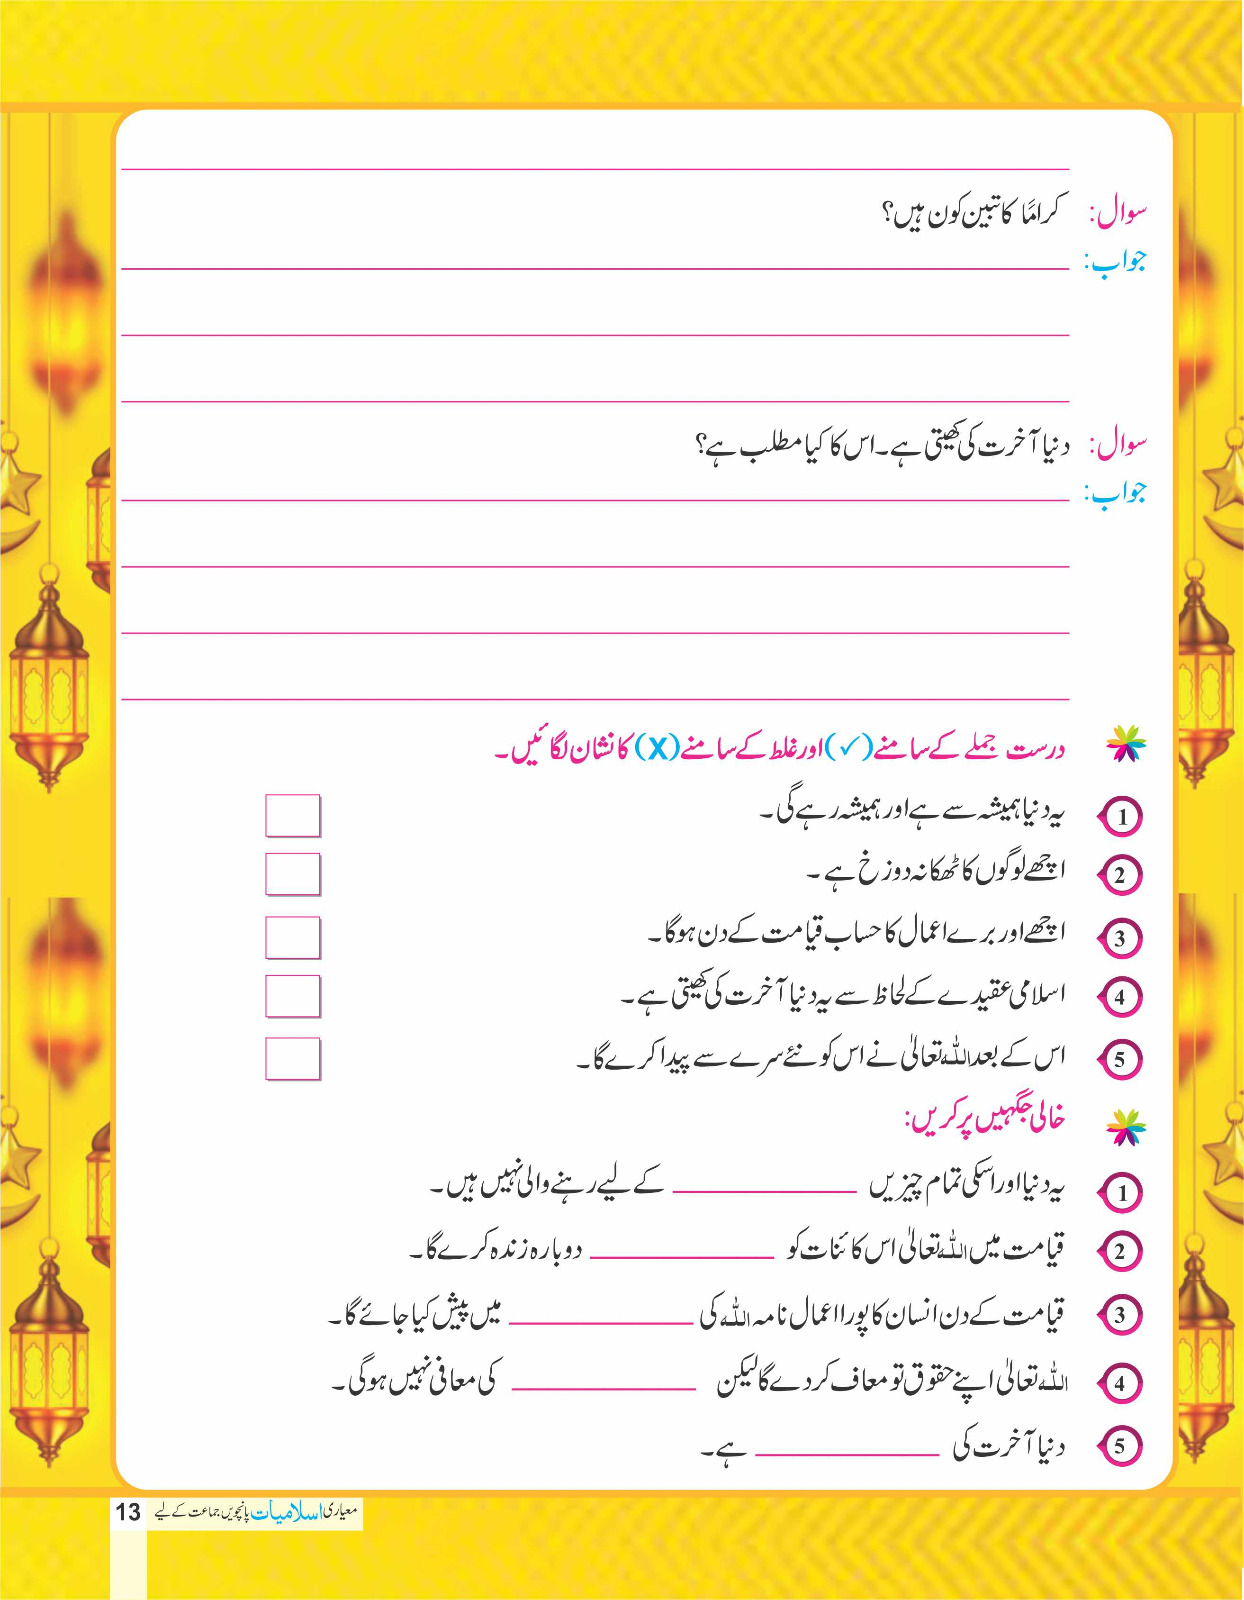 سوال: کراماً کاتبین کون ہیں؟
جواب:
سوال: دنیا آخرت کی کھیتی ہے۔ اس کا کیا مطلب ہے؟
جواب:
درست جملے کے سامنے (✓) اور غلط کے سامنے (X) کا نشان لگائیں۔
1 یہ دنیا ہمیشہ سے ہے اور ہمیشہ رہے گی۔
2 اچھے لوگوں کا ٹھکانہ دوزخ ہے۔
3 اچھے اور برے اعمال کا حساب قیامت کے دن ہوگا۔
4 اسلامی عقیدے کے لحاظ سے یہ دنیا آخرت کی کھیتی ہے۔
5 اس کے بعد اللہ تعالیٰ نے اس کو نئے سرے سے پیدا کرے گا۔
خالی جگہیں پر کریں:
1 یہ دنیا اور اسکی تمام چیزیں ________ کے لیے رہنے والی نہیں ہیں۔
2 قیامت میں اللہ تعالیٰ اس کائنات کو ________ دوبارہ زندہ کرے گا۔
3 قیامت کے دن انسان کا پورا اعمال نامہ اللہ کی ________ میں پیش کیا جائے گا۔
4 اللہ تعالیٰ اپنے حقوق تو معاف کر دے گا لیکن ________ کی معافی نہیں ہوگی۔
5 دنیا آخرت کی ________ ہے۔
معیاری اسلامیات پانچویں جماعت کے لیے 13